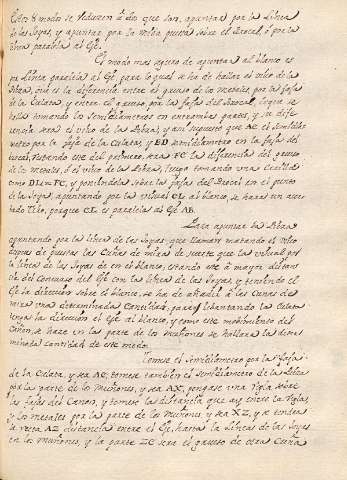 Estos modos se reducen á dos que son, apuntar por la Linea
de las Joyas, y apuntar por la mira puesta sobre el Brocal, ó por la
linea paralela al Eje.
El modo mas seguro de apuntar al blanco es
por Linea paralela al Eje para lo qual se ha de hallar el vivo de la
Pieza, que es la diferencia entre el grueso de los metales, por la faja
de la Culata, y entre el grueso por las fajas del Brocal, lo que se
halla tomando los Semidiametros en entrambas partes, y su dife
rencia sera el vivo de la Pieza, y asi supuesto que AC el Semidia
metro por la faja de la Culata, y BD semidiametro en la faja del
brocal, restando este del primero, sera FC la diferencia del grueso
de los metales, ó el vivo de la Pieza, luego tomando una
como DL = FC, y poniendola sobre la faja del Brocal en el punto
de la Joya, apuntando por la visual CL al blanco, se hara un acer
tado Tiro, porque CL es paralela al Eje AB.
Para apuntar la Pieza
apuntando por la linea de las Joyas que llaman matando el vivo
despues de puestas las Cuñas de mira de suerte que la visual por
la linea de las Joyas dé en el blanco, estando este á mayor distan
cia del Concurso del Eje con la linea de las Joyas, y teniendo el
Eje la direccion sobre el blanco, se ha de añadir á las Cunas de
mira una determinada Cantidad, para que levantando la Culata
tenga la direccion el Eje al blanco, y como este movimiento del
Cañon, se hace en las parte de los Muñones se hallara la deter
minada cantidad de este modo.
Tomese el Semidiametro por la faja
de la Culata, y sea AC, tomese tambien el Semidiametro de la Pieza
por la parte de los Muñones, y sea AX, pongase una Regla sobre
las fajas del Canon, y tomese la distancia que ay entre la Regla,
y los metales por la parte de los Muñones, y sea XZ, y se tendra
la recta AZ distancia entre el Eje, hasta la Linea de las Joyas
en los Muñones, y la parte ZC sera el grueso de otra Cuña